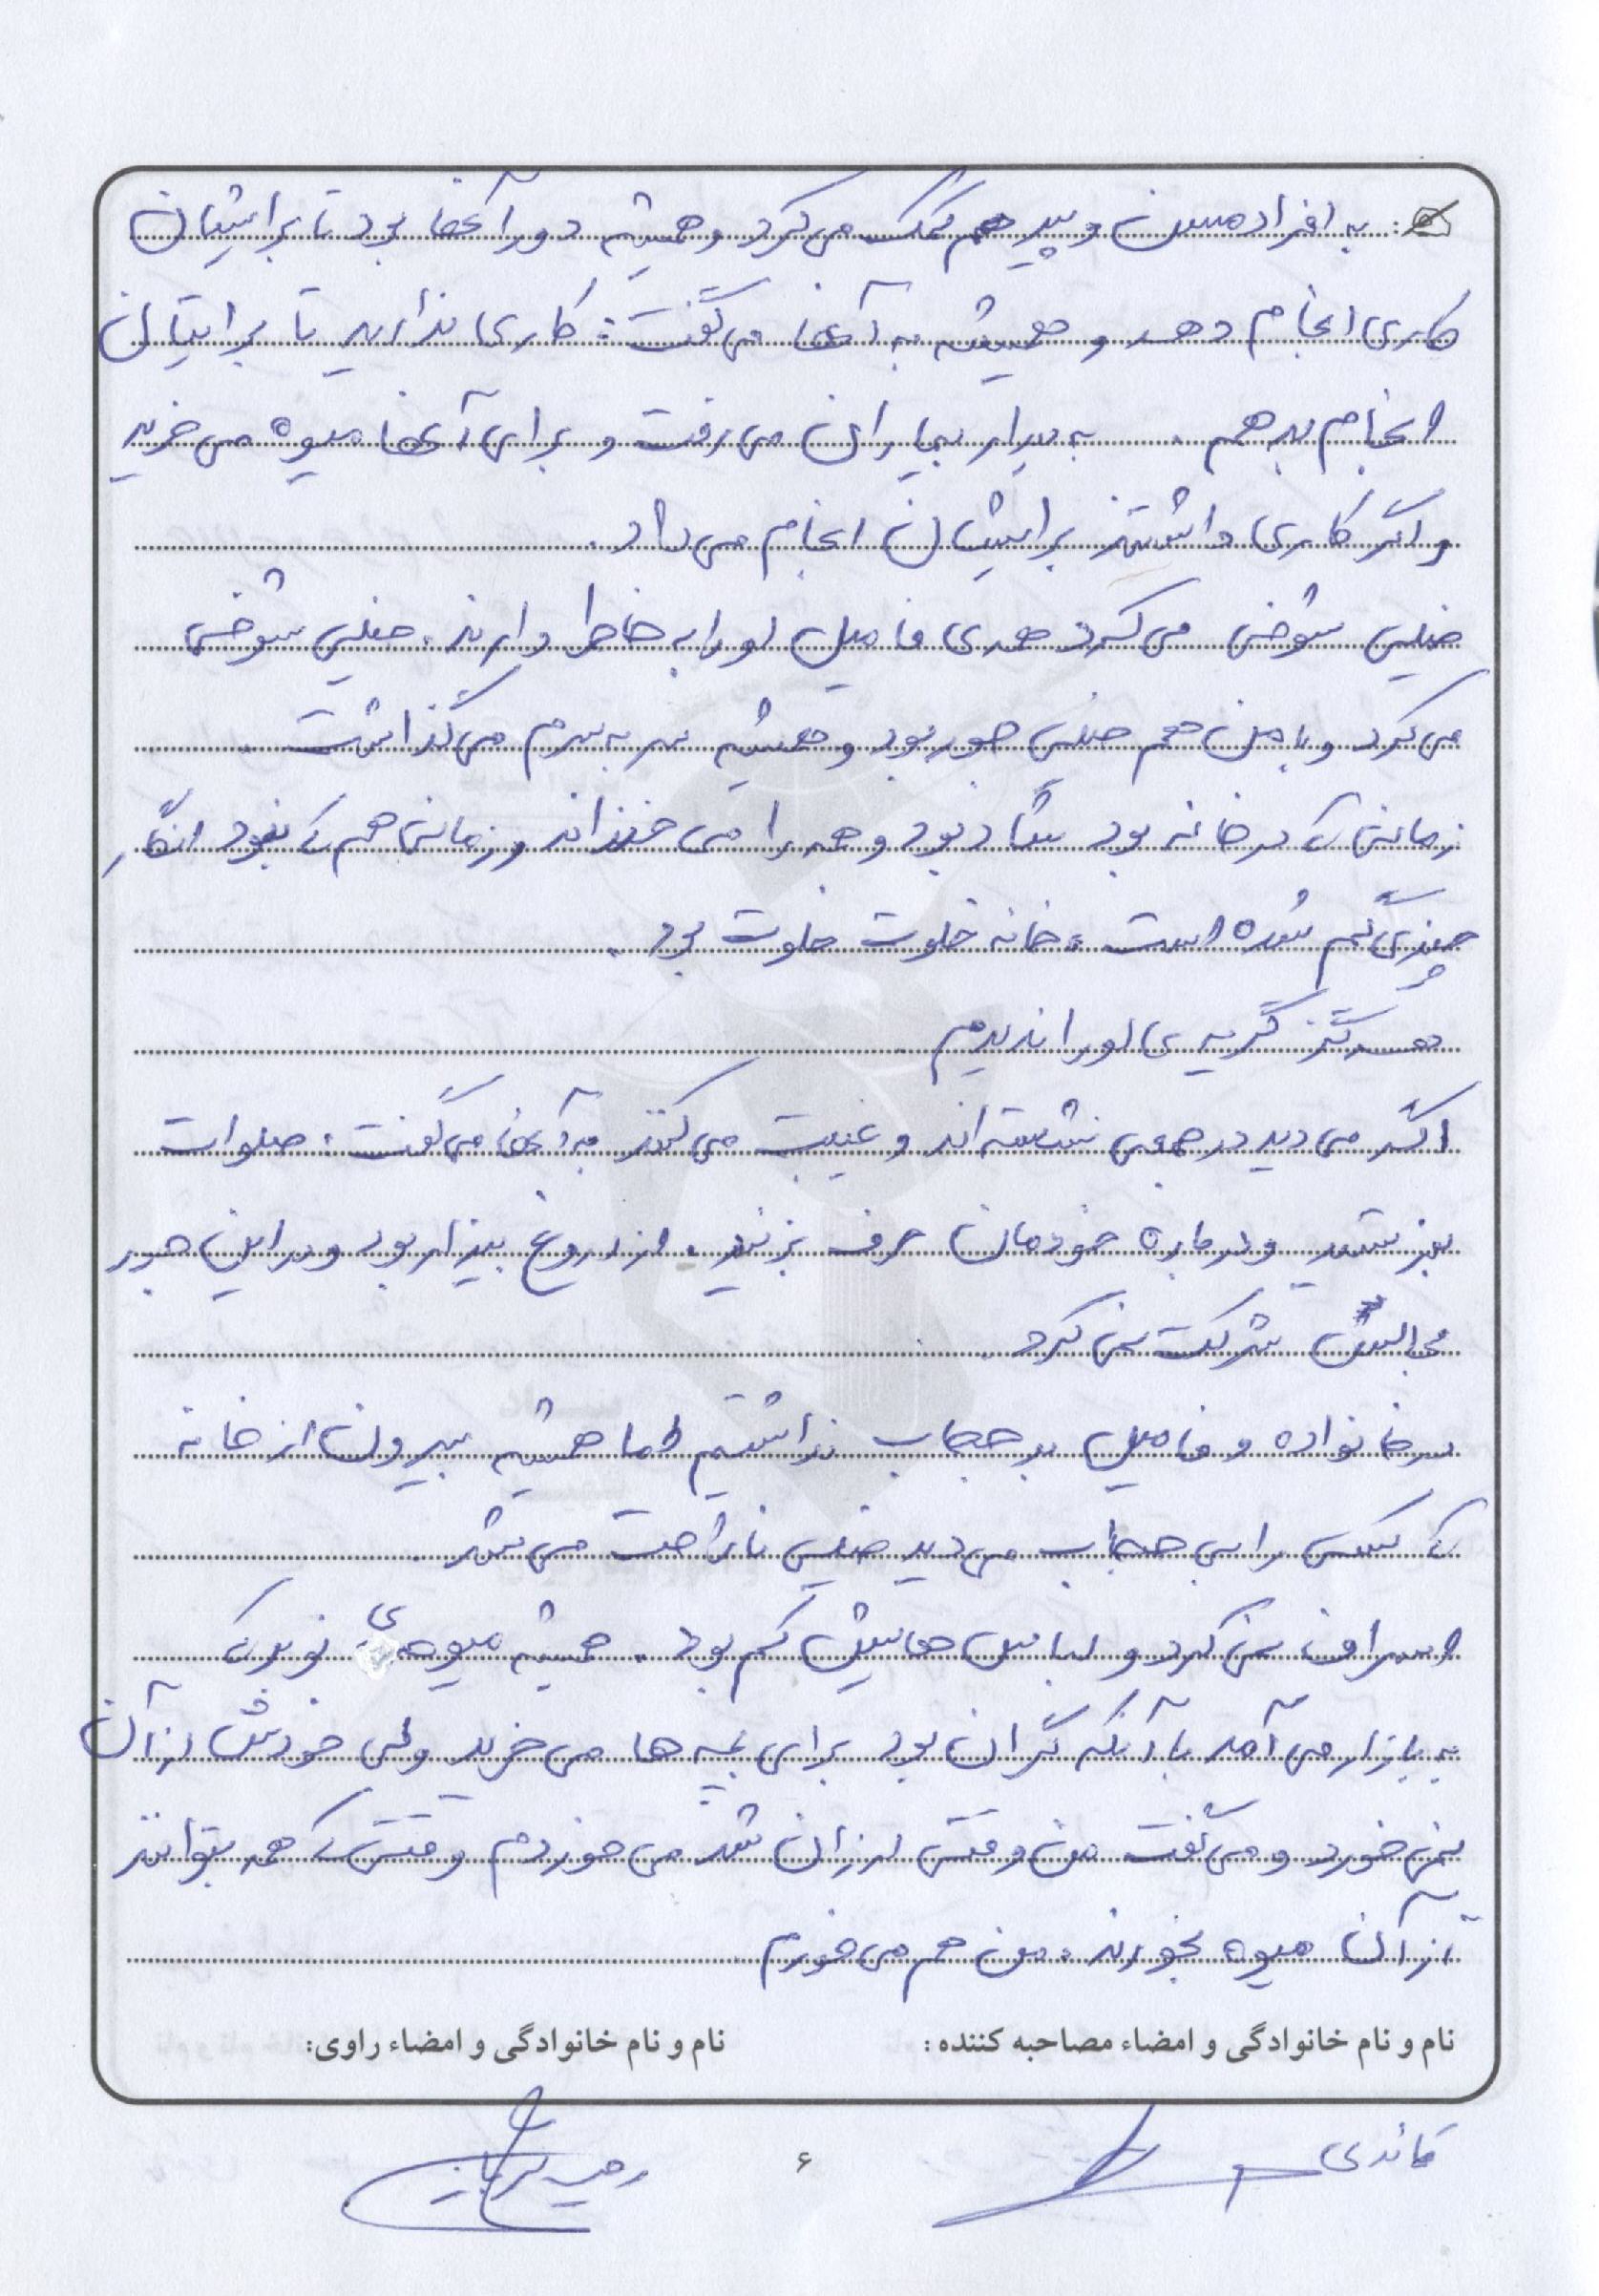 به افراد مسن و پیر هم کمک می کرد و همیشه دور آنها بود تا برایشان
کاری انجام دهد و همیشه به آنها می گفت: کاری ندارید تا برایتان
انجام بدهم. به دیدار بیماران می رفت و برای آنها میوه می خرید
و اگر کاری داشتند برایشان انجام می داد.
خیلی شوخی می کرد همه ی فامیل او را به خاطر دارند. خیلی شوخی
می کرد و با من هم خیلی جور بود و همیشه سر به سرم می گذاشت.
زمانی که در خانه بود شاد بود و همه را می خنداند و زمانی هم که نبود انگار
چیزی گم شده است. خانه خلوت خلوت بود.
هرگز گریه ی او را ندیدم
اگر می دید در جمعی نشسته اند و غیبت می کنند به آنها می گفت: صلوات
بفرستید و درباره خودمان حرف بزنید. از دروغ بیزار بود و در این جور
مجالس شرکت نمی کرد.
در خانواده و فامیل بد حجاب نداشتیم اما همیشه بیرون از خانه
که کسی را بی حجاب می دید خیلی ناراحت می شد.
اسراف نمی کرد و لباس هایش کم بود. همیشه میوه ی نوبر که
به بازار می آمد با آنکه گران بود برای بچه ها می خرید ولی خودش از آن
نمی خورد و می گفت من وقتی ارزان شد می خوردم وقتی که همه بتوانند
از آن میوه بخورند. من هم می خورم
نام و نام خانوادگی و امضاء مصاحبه کننده: نام و نام خانوادگی و امضاء راوی:
۶